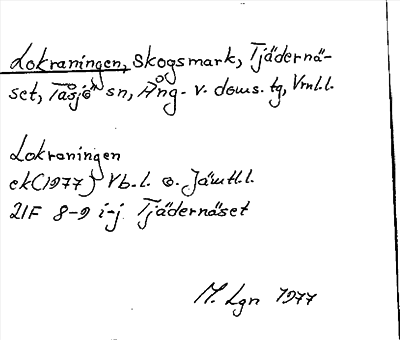 Lokraningen, Skogsmark, Tjädernä-
set, Tåsjö sn, Ång. v. doms. tg, Vrnl.l.
Lokraningen
ek(1977) Vb.l. o. Jämtl.l.
21F 8-9 i-j Tjädernäset
M. Lgn 1977